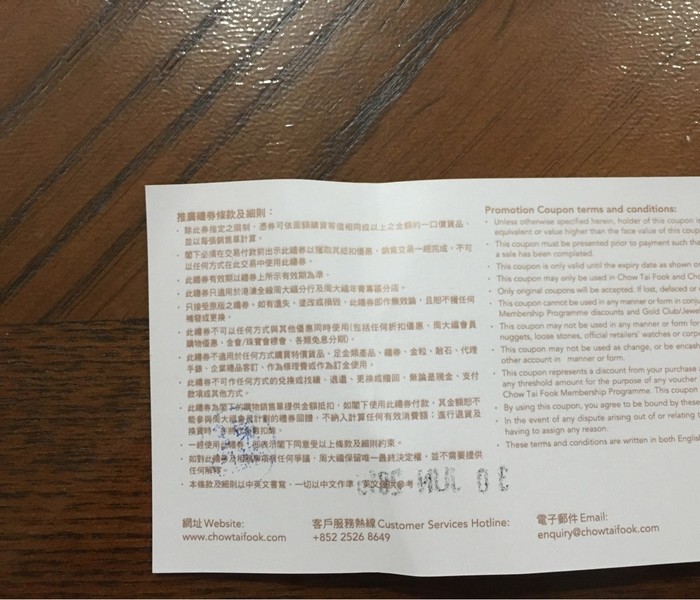 推廣禮券條款及細則：
· 除此券指定之限制，憑券可依面額購買等值相同或以上之金額的一口價貨品，
並以每張銷售單計算。
· 閣下必須在交易付款前出示此禮券以獲取其抵扣優惠，銷售交易一經完成，不可
以任何方式在此交易中使用此禮券。
· 此禮券有效期以禮券上所示有效期為準。
· 此禮券只適用於港澳全線周大福分行及周大福年青專區分店。
· 只接受原版之禮券。如有遺失、塗改或損毀，此禮券即作無效論，且恕不獲任何
補發或更換。
· 此禮券不可以任何方式與其他優惠同時使用(包括任何折扣優惠、周大福會員
購物優惠、金會/珠寶會禮會、各類免息分期)。
· 此禮券不適用於任何方式購買特價貨品、足金類產品、禮券、金粒、散石、代理
手錶、企業禮品客訂、作為修理費或作為訂金使用。
· 此禮券不可作任何方式的兌換或找續、退還、更換或贖回，無論是現金、支付
款項或其他方式。
· 此禮券為閣下的購物銷售單提供金額抵扣，如閣下使用此禮券付款，其金額恕不
能參與周大福會員計劃的禮券回饋，不納入計算任何有效消費額；進行退貨及
換貨時，
· 一經使用此禮券，即表示閣下同意受以上條款及細則約束。
· 如對此禮券及相關事項有任何爭議，周大福保留唯一最終決定權，並不需要提供
任何解釋。
· 本條款及細則以中英文書寫，一切以中文作準，英文僅供參考。
Promotion Coupon terms and conditions:
· Unless otherwise specified herein, holder of this coupon
equivalent or value higher than the face value of this coup
· This coupon must be presented prior to payment such
a sale has been completed.
· This coupon is only valid until the expiry date as shown
· This coupon may only be used in Chow Tai Fook and
· Only original coupons will be accepted. If lost, defaced or
· This coupon cannot be used in any manner or form in
Membership Programme discounts and Gold Club/Jewel
· This coupon may not be used in any manner or form
nuggets, loose stones, official retailers' watches or
· This coupon may not be used as change, or be
other account in manner or form.
· This coupon represents a discount from your purchase
any threshold amount for the purpose of any voucher
Chow Tai Fook Membership Programme. This coupon
· By using this coupon, you agree to be bound by these
· In the event of any dispute arising out of or relating
having to assign any reason.
· These terms and conditions are written in both
網址 Website:
www.chowtaifook.com
客戶服務熱線 Customer Services Hotline:
+852 2526 8649
電子郵件 Email:
enquiry@chowtaifook.com